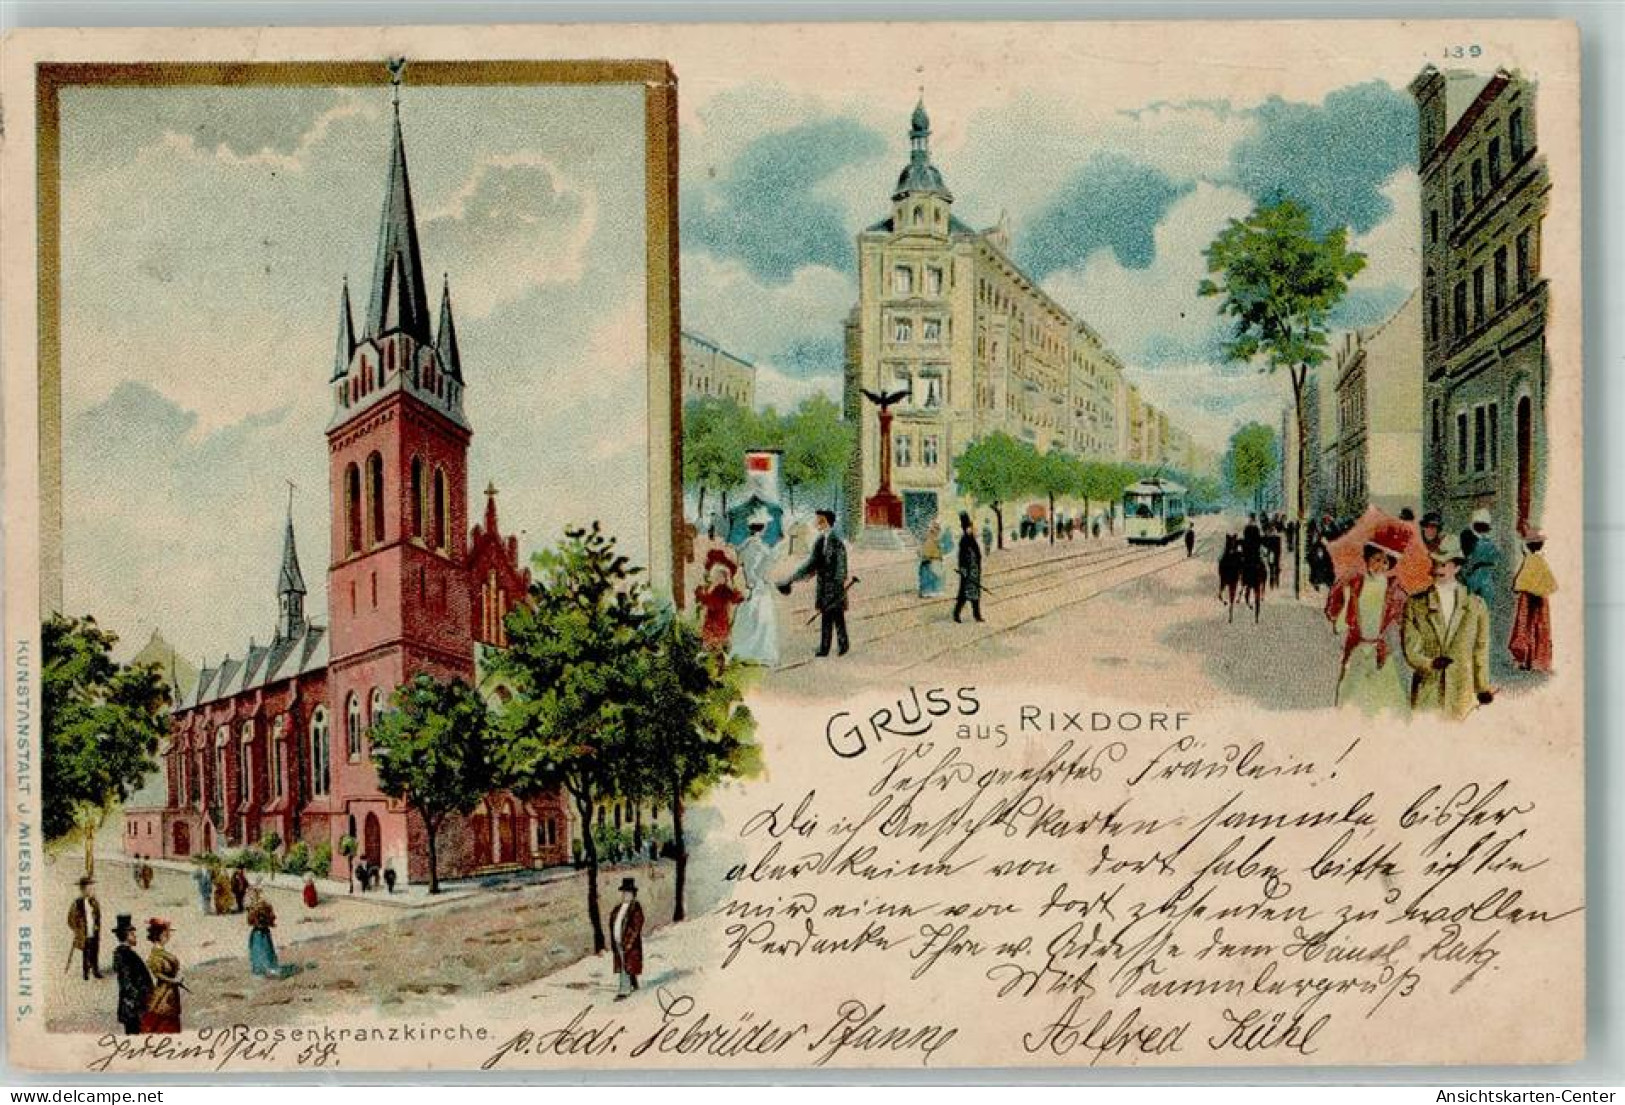 139
KUNSTANSTALT J. MIESLER BERLIN S.
GRUSS aus RIXDORF
Sehr geehrtes Fräulein!
Da ich Ansichtskarten sammle, bisher
aber keine von dort habe bitte ich Sie
mir eine von dort zusenden zu wollen
Verdanke Ihre w. Adresse dem
Mit Sammlergruß
Rosenkranzkirche.
Juliusstr. 58. p. Adr. Gebrüder Pfanne Alfred Kühl
Ansichtskarten-Center
delcampe.net